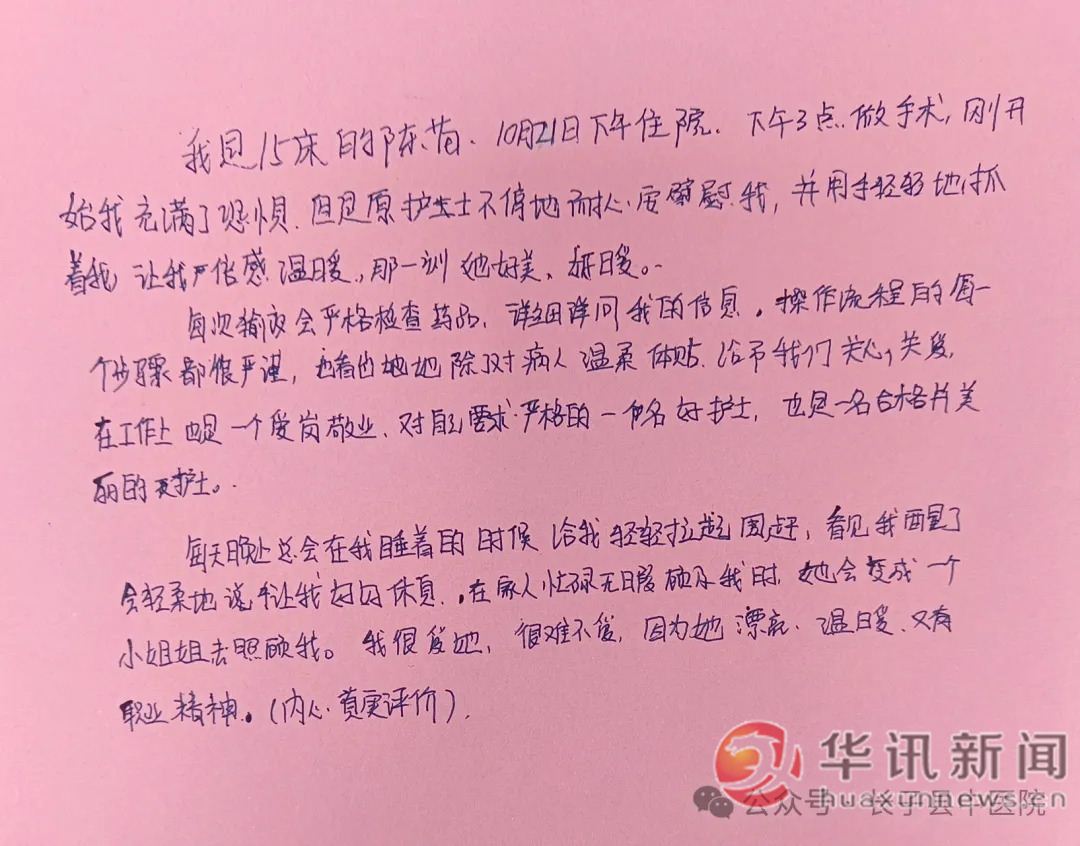 我是15床的陈苗、10月21日下午住院、下午3点做手术,刚开
始我充满了恐惧、但是原护士不停地耐心安慰我,并用手轻轻地抓
着我,让我倍感温暖,那一刻她好美、好暖。
每次输液会严格检查药品、详细询问我的信息。操作流程的每一
个步骤都很严谨,对病人温柔体贴、给予我们关心,关爱,
在工作上也是一个爱岗敬业、对自己要求严格的一名好护士,也是一名合格并美
丽的好护士。
每天晚上总会在我睡着的时候给我轻轻拉起围赶,看见我醒了
会轻柔地说让我好好休息。在家人忙碌无暇顾及我时,她会变成一个
小姐姐去照顾我。我很爱她,很难不爱,因为她漂亮、温暖、又有
职业精神。(内心真实评价)
华讯新闻
huaxunnews.cn
公众号 长子县中医院